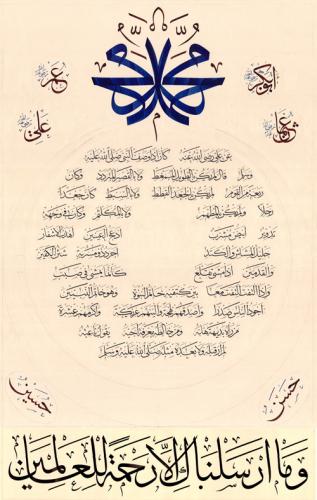 محمد
ابوبكر
عمر
عثمان
علي
عن علي رضي الله عنه كان اذا وصف النبي صلى الله عليه
وسلم قال لم يكن بالطويل الممغط ولا بالقصير المتردد وكان
ربعة من القوم لم يكن بالجعد القطط ولا بالسبط كان جعدا
رجلا ولم يكن بالمطهم ولا بالمكلثم وكان في وجهه
تدوير ابيض مشرب ادعج العينين اهدب الاشفار
جليل المشاش والكتد اجرد ذو مسربة شثن الكفين
والقدمين اذا مشى تقلع كانما يمشي في صبب
واذا التفت التفت معا بين كتفيه خاتم النبوة وهو خاتم النبيين
اجود الناس صدرا واصدقهم لهجة والينهم عريكة واكرمهم عشرة
من رآه بديهة هابه ومن خالطه معرفة احبه يقول ناعته
لم ار قبله ولا بعده مثله صلى الله عليه وسلم
حسن
حسين
وما ارسلناك الا رحمة للعالمين